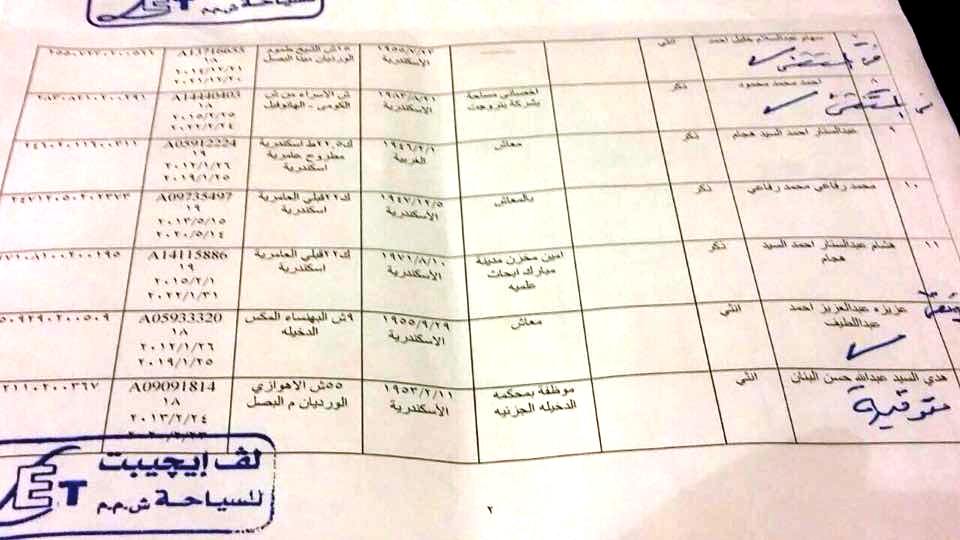 ET للسياحة ش.م.م
٧ سهام عبدالسلام خليل احمد انثي ١٩٥٥/٢/٢٢ الاسكندرية ١٥ش الشيخ طموم الورديان مينا البصل
في المستشفى
٨ احمد محمد محمود ذكر اخصائي مساحة بشركة بتروجت ١٩٨٣/٨/٢١ الاسكندرية ش الاسراء من ش الكومي - الهانوفيل A14440403 ١٨ ٢٠١٥/٢/٢٥ ٢٠٢٢/٢/٢٤ ٢٨٣٠٨٢١٠٢٠٠٢٩١
في المستشفى
٩ عبدالستار احمد السيد هجام ذكر معاش ١٩٤٦/٢/١ الغربية ك٢١.٥ط اسكندرية مطروح عامرية اسكندرية A05912224 ١٩ ٢٠١٢/١/٢٦ ٢٠١٩/١/٢٥ ٢٤٦٠٢٠١١٦٠٠٣١١
١٠ محمد رفاعي محمد رفاعي ذكر بالمعاش ١٩٤٧/١٢/٥ الاسكندرية ك٢٢قبلي العامرية اسكندرية A09735497 ١٩ ٢٠١٣/٥/١٥ ٢٠٢٠/٥/١٤ ٢٤٧١٢٠٥٠٢٠٢٣٧٣
١١ هشام عبدالستار احمد السيد هجام ذكر امين مخزن مدينة مبارك ابحاث علميه ١٩٧١/٨/١٠ الاسكندرية ك٢٢قبلي العامرية اسكندرية A14115886 ١٩ ٢٠١٥/٢/١ ٢٠٢٢/١/٣١ ٧١٠٨١٠٠٢٠٠١٩٥
عزيزه عبدالعزيز احمد عبداللطيف انثي معاش ١٩٥٥/٩/٢٩ الاسكندرية ٩ش البهنساء المكس الدخيله A05933320 ١٨ ٢٠١٢/١/٢٦ ٢٠١٩/١/٢٥ ٥٠٩٢٩٠٢٠٠٥٠٩
هدي السيد عبدالله حسن البنان انثي موظفة بمحكمه الدخيله الجزئيه ١٩٥٣/٢/١١ الاسكندرية ٥٥ش الاهوازي الورديان م البصل A09091814 ١٨ ٢٠١٣/٢/٢٤ ٢١١٠٢٠٠٣٦٧
متوفية
لف إيجيبت
ET للسياحة ش.م.م
٢